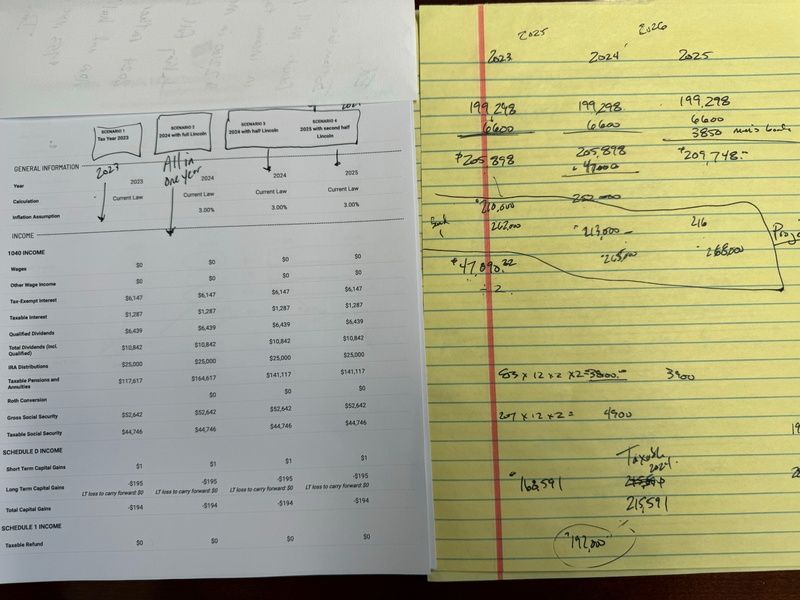 SCENARIO 1
Tax Year 2023
SCENARIO 2
2024 with full Lincoln
SCENARIO 3
2024 with half Lincoln
SCENARIO 4
2025 with second half
Lincoln
GENERAL INFORMATION
2023
All in
one year
Year 2023 2024 2024 2025
Calculation Current Law Current Law Current Law Current Law
Inflation Assumption 3.00% 3.00% 3.00%
INCOME
1040 INCOME
Wages $0 $0 $0 $0
Other Wage Income $0 $0 $0 $0
Tax-Exempt Interest $6,147 $6,147 $6,147 $6,147
Taxable Interest $1,287 $1,287 $1,287 $1,287
Qualified Dividends $6,439 $6,439 $6,439 $6,439
Total Dividends (incl.
Qualified) $10,842 $10,842 $10,842 $10,842
IRA Distributions $25,000 $25,000 $25,000 $25,000
Taxable Pensions and
Annuities $117,617 $164,617 $141,117 $141,117
Roth Conversion $0 $0 $0
Gross Social Security $52,642 $52,642 $52,642 $52,642
Taxable Social Security $44,746 $44,746 $44,746 $44,746
SCHEDULE D INCOME
Short Term Capital Gains $1 $1 $1 $1
Long Term Capital Gains -$195 -$195 -$195 -$195
LT loss to carry forward: $0 LT loss to carry forward: $0 LT loss to carry forward: $0 LT loss to carry forward: $0
Total Capital Gains -$194 -$194 -$194 -$194
SCHEDULE 1 INCOME
Taxable Refund $0 $0 $0 $0
2025 2026
2023 2024 2025
199,298 199,298 199,298
6600 6600 6600
3850
$205,898 205,898 $209,748.-
47000
252000
210,000
262,000 213,000 216
265,000 268,000
$47,090.22
÷ 2
× 12 × 2 × 2 = 3800.- 3900
207 × 12 × 2 = 4900
Taxable
2024
168,591
215,591
192,000